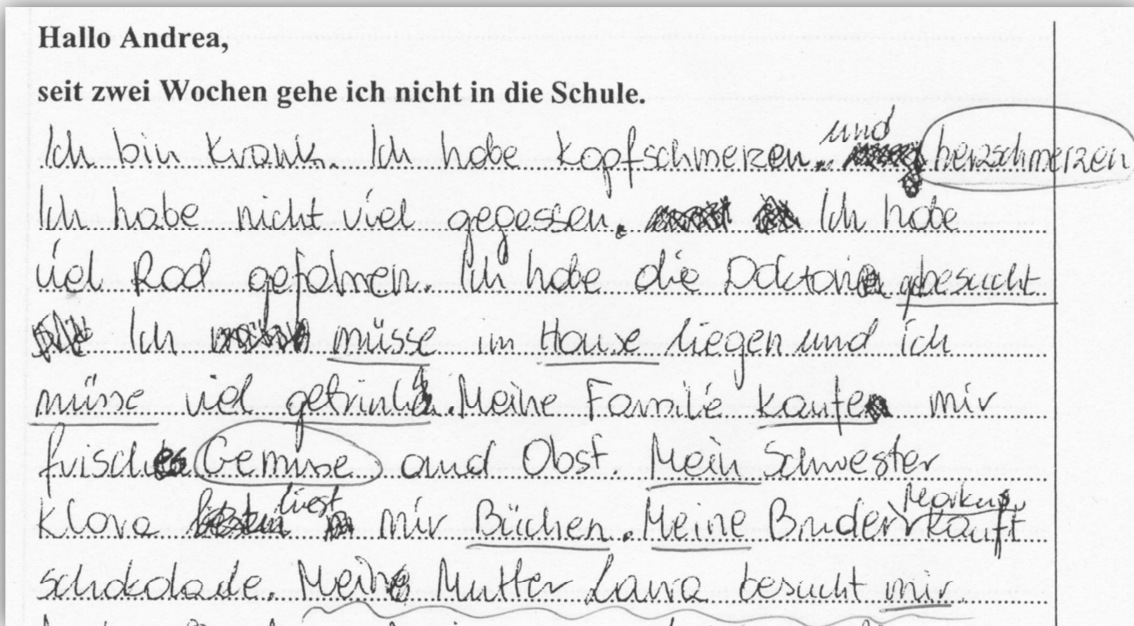 Hallo Andrea,
seit zwei Wochen gehe ich nicht in die Schule.
Ich bin krank. Ich habe kopfschmerzen und herzschmerzen
Ich habe nicht viel gegessen. Ich habe
viel Rad gefahren. Ich habe die gebesucht
Ich müsse im Hause liegen und ich
müsse viel Meine Familie kaufe mir
frisches Gemüse und Obst Mein Schwester
Klara liest mir Büchen. Meine Bruder Markus kauft
schokolade. Meine Mutter Laura besucht mir.